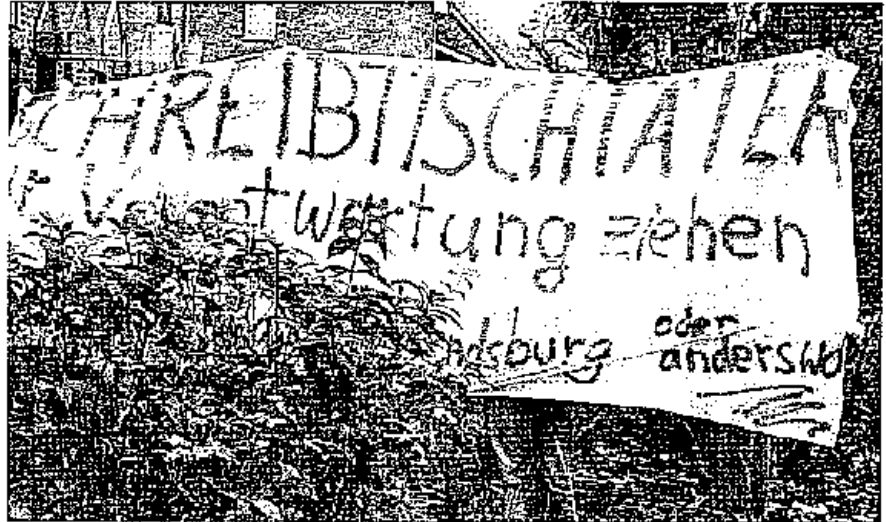 SCHREIBTISCHTATER
Verantwortung ziehen
ndsburg oder
anderswo